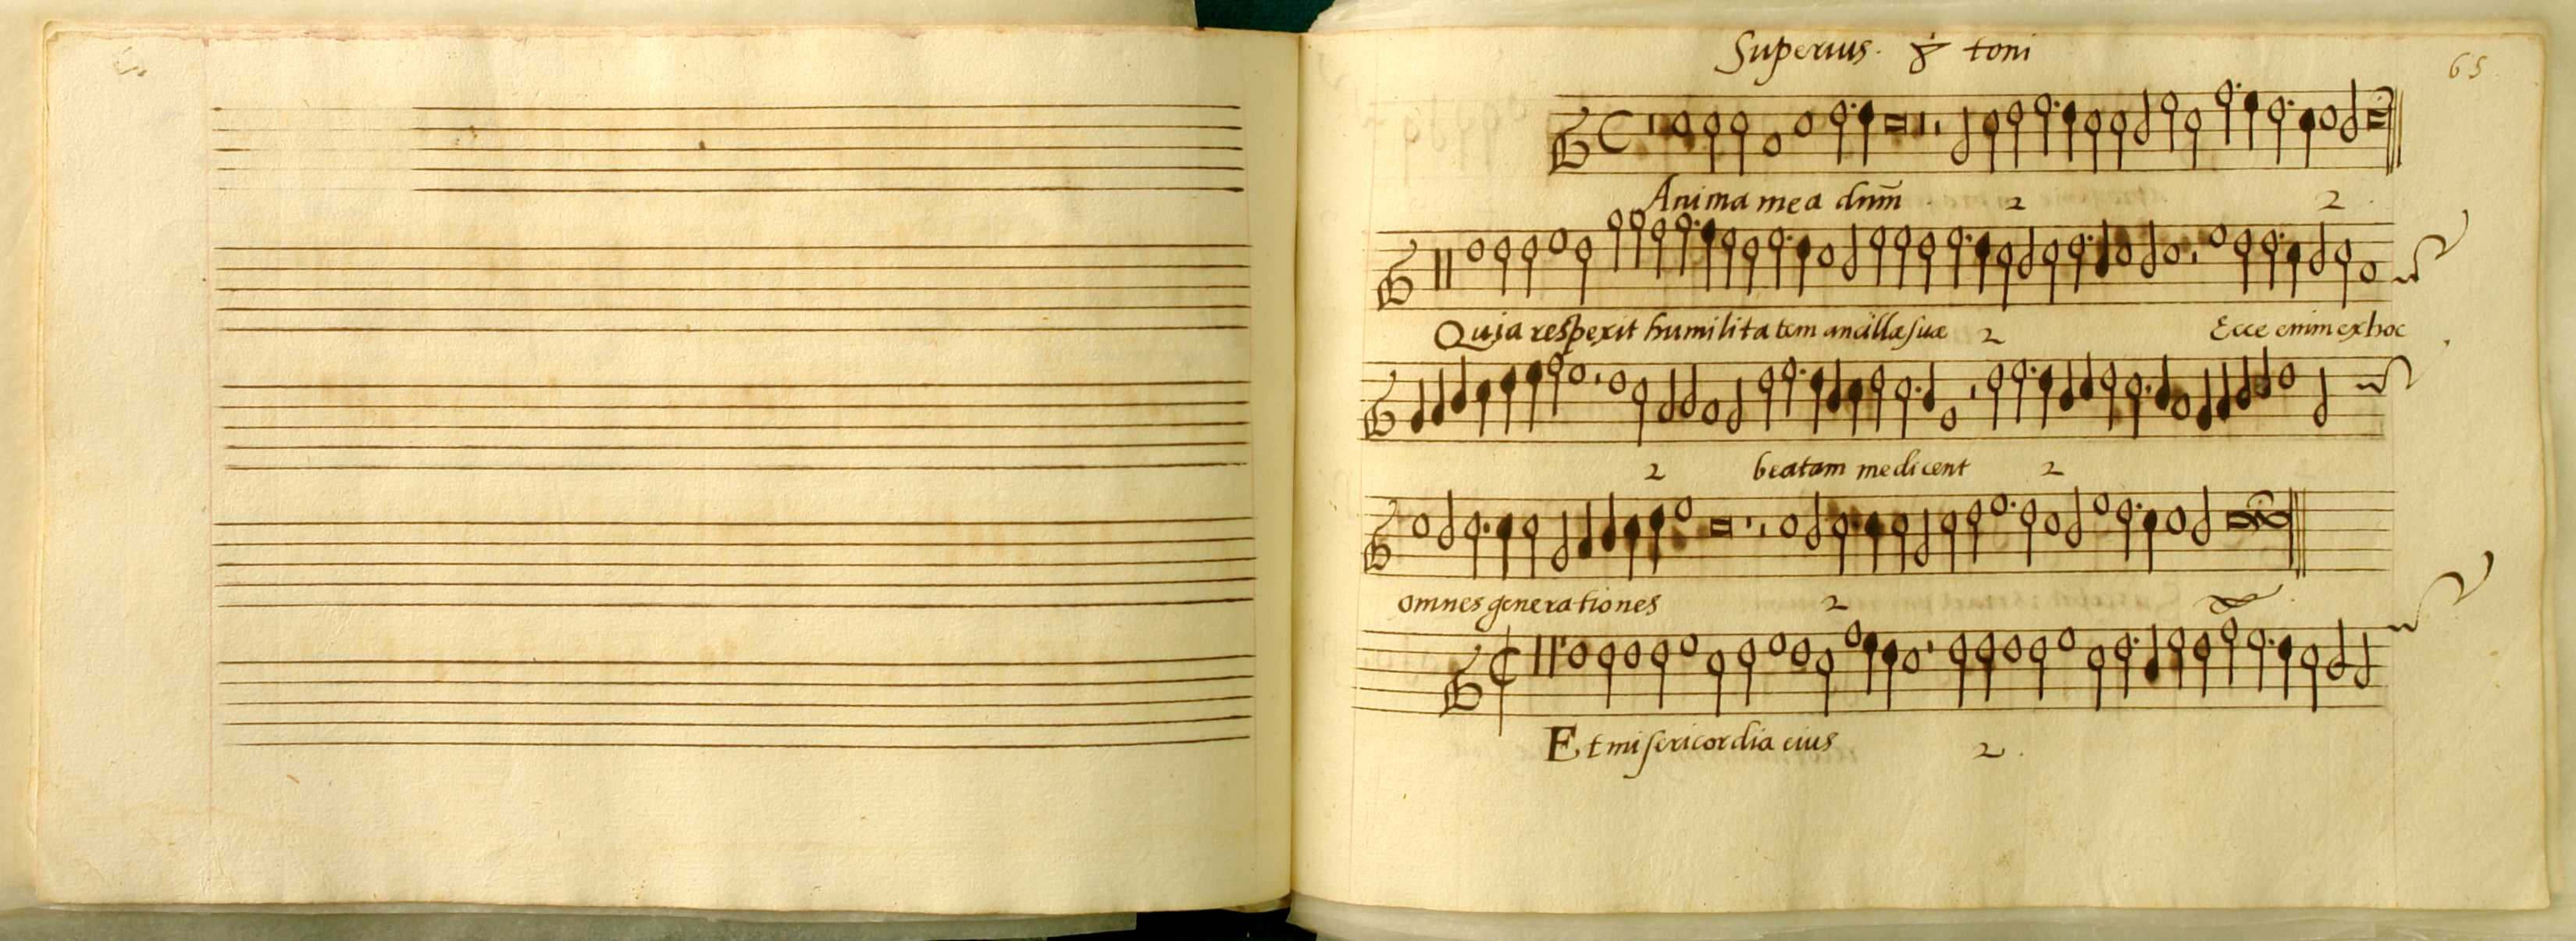 Superius. 8 toni
65
Anima mea dnm̄ 2 2
Quia respexit humilitatem ancillæ suæ 2 Ecce enim ex hoc
2 beatam me dicent 2
omnes generationes 2
Et misericordia eius 2.